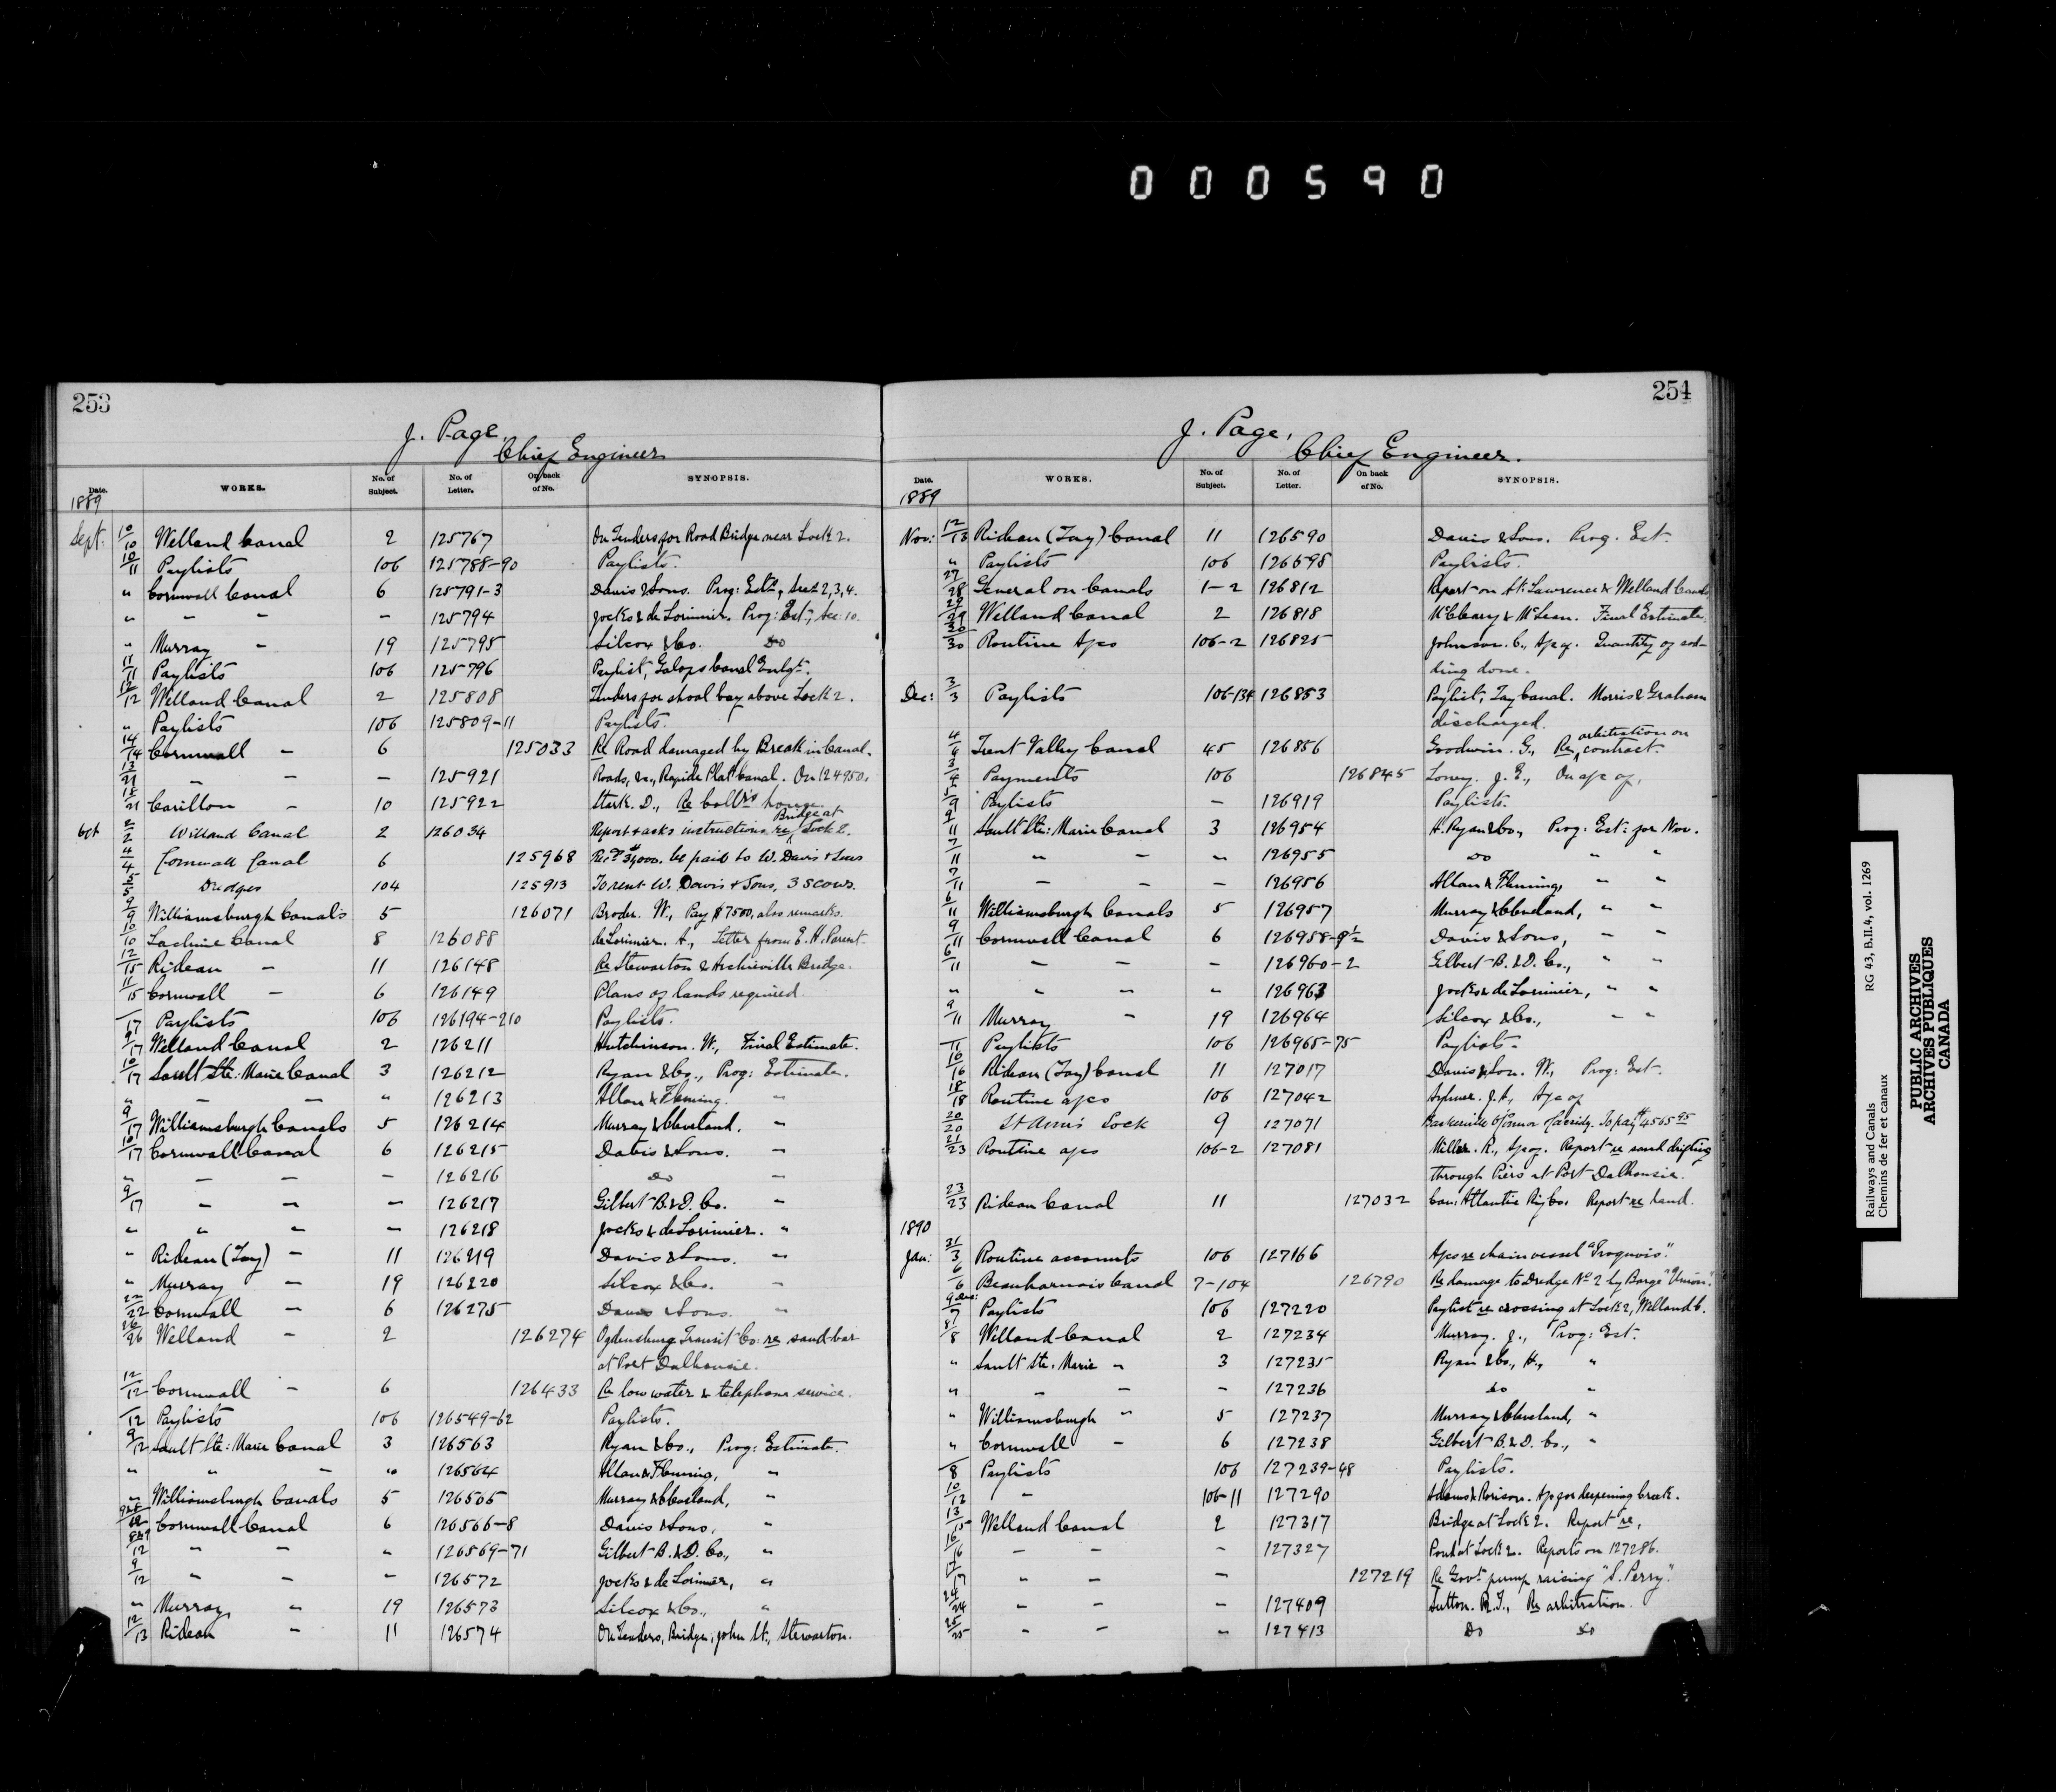 000590
253
J. Page,
Chief Engineer
Date. WORKS. No. of Subject. No. of Letter. On back of No. SYNOPSIS.
1889
Sept: 10/10 Welland Canal 2 125767 On Tenders for Road Bridge near Lock 2.
10/11 Paylists 106 125788-90 Paylists.
" Cornwall Canal 6 125791-3 Davis & Sons. Prog: Ests, Secs 2, 3, 4.
" - - - 125794 Jocks & de Lorimier. Prog: Est., Sec: 10.
" Murray - 19 125795 Silcox & Co. Do
11/11 Paylists 106 125796 Paylist, Galops Canal Enlgt.
12/12 Welland Canal 2 125808 Tenders for shoal bay above Lock 2.
" Paylists 106 125809-11 Paylists.
14/14 Cornwall - 6 125033 Re Road damaged by Break in Canal.
- - - 125921 Roads, &c., Rapide Plat Canal. On 124950.
Carillon - 10 125922 Stark. D., Re Collr's house.
Oct 2/2 Welland Canal 2 126034 Report & asks instructions re Bridge at Lock 2.
4/4 Cornwall Canal 6 125968 $34,000. be paid to W. Davis & Sons
5/5 Dredges 104 125913 To rent W. Davis & Sons, 3 scows.
9/9 Williamsburgh Canals 5 126071 Broder. W., Pay $7500, also remarks.
10/10 Lachine Canal 8 126088 de Lorimier. A., Letter from E. H. Parent.
12/15 Rideau - 11 126148 Re Stewarton & Archieville Bridge.
11/15 Cornwall - 6 126149 Plans of lands required.
/17 Paylists 106 126194-210 Paylists.
9/17 Welland Canal 2 126211 Hutchinson. W., Final Estimate.
10/17 Sault Ste: Marie Canal 3 126212 Ryan & Co., Prog: Estimate.
" - - " 126213 Allan & Fleming. "
9/17 Williamsburgh Canals 5 126214 Murray & Cleveland. -
10/17 Cornwall Canal 6 126215 Davis & Sons. -
" - - - 126216 Do -
9/17 - - - 126217 Gilbert B. & D. Co. -
" " - - 126218 Jocks & de Lorimier. "
" Rideau (Tay) - 11 126219 Davis & Sons. -
" Murray - 19 126220 Silcox & Co. -
22/22 Cornwall - 6 126275 Davis & Sons. "
26/26 Welland - 2 126274 Ogdensburg Transit Co: re sand-bar
at Port Dalhousie.
12/12 Cornwall - 6 126433 Re low water & telephone service.
/12 Paylists 106 126549-62 Paylists.
9/12 Sault Ste: Marie Canal 3 126563 Ryan & Co., Prog: Estimate.
" " - " 126564 Allan & Fleming, "
" Williamsburgh Canals 5 126565 Murray & Cleveland, "
Cornwall Canal 6 126566-8 Davis & Sons, "
" - " 126569-71 Gilbert B. & D. Co., "
9/12 - - - 126572 Jocks & de Lorimier, "
" Murray, " 19 126573 Silcox & Co., "
12/13 Rideau - 11 126574 On Tenders, Bridge, John St., Stewarton.
254
J. Page,
Chief Engineer.
Date. WORKS. No. of Subject. No. of Letter. On back of No. SYNOPSIS.
1889
Nov: 12/13 Rideau (Tay) Canal 11 126590 Davis & Sons. Prog. Est.
" Paylists 106 126698 Paylists.
27/28 General on Canals 1-2 126812 Report on St. Lawrence & Welland Canals
29/29 Welland Canal 2 126818 McCleary & McLean. Final Estimate.
30/30 Routine A/cs 106-2 126825 Johnson. C., A/c of. Quantity of sod-
ding done.
Dec: 3/3 Paylists 106-134 126853 Paylist, Tay Canal. Morris & Graham
discharged.
Trent Valley Canal 45 126856 Goodwin. G., Re arbitration on contract.
3/4 Payments 106 126845 Loney. J. E., On a/c of.
5/9 Paylists - 126919 Paylists.
9/11 Sault Ste: Marie Canal 3 126954 H. Ryan & Co., Prog: Est: for Nov.
7/11 " - " 126955 Do " "
7/11 - - - 126956 Allan & Fleming, " "
6/11 Williamsburgh Canals 5 126957 Murray & Cleveland, " "
9/11 Cornwall Canal 6 126958-9½ Davis & Sons, - -
6/11 - - - 126960-2 Gilbert B. & D. Co., " "
" " - " 126963 Jocks & de Lorimier, " "
9/11 Murray - 19 126964 Silcox & Co., - -
/11 Paylists 106 126965-75 Paylists.
10/16 Rideau (Tay) Canal 11 127017 Davis & Son. W., Prog: Est.
18/18 Routine a/cs 106 127042 Aylmer. J. A., A/c of
20/20 St Ann's Lock 9 127071 Baskerville O'Connor & Cassidy. To pay $4565 95
21/23 Routine a/cs 106-2 127081 Miller. R., A/c of. Report re sand drifting
through Piers at Port Dalhousie.
23/23 Rideau Canal 11 127032 Can: Atlantic Ry Co. Report re land.
1890
Jan: 31/3 Routine accounts 106 127166 A/cs re chain vessel "Iroquois."
6/6 Beauharnois Canal 7-104 126790 Re damage to Dredge No 2 by Barge "Union".
9 Dec:/7 Paylists 106 127220 Paylist re crossing at Lock 2, Welland C.
8/8 Welland Canal 2 127234 Murray. J., Prog: Est.
" Sault Ste. Marie " 3 127235 Ryan & Co., H., "
" - - - 127236 do "
" Williamsburgh " 5 127237 Murray & Cleveland, "
" Cornwall - 6 127238 Gilbert B. & D. Co., "
/8 Paylists 106 127239-48 Paylists.
10/12 " 106-11 127290 Adams & Rorison. A/c for deepening creek.
13/15 Welland Canal 2 127317 Bridge at Lock 2. Report re,
16/16 - - - 127327 Pond at Lock 2. Reports on 127286.
17/17 - - - 127219 Re Govt. pump raising "S. Perry".
24/24 - - - 127409 Sutton. R. T., Re arbitration.
25/25 - - " 127413 Do Do
Railways and Canals RG 43, B.II.4, vol. 1269
Chemins de fer et canaux
PUBLIC ARCHIVES
ARCHIVES PUBLIQUES
CANADA